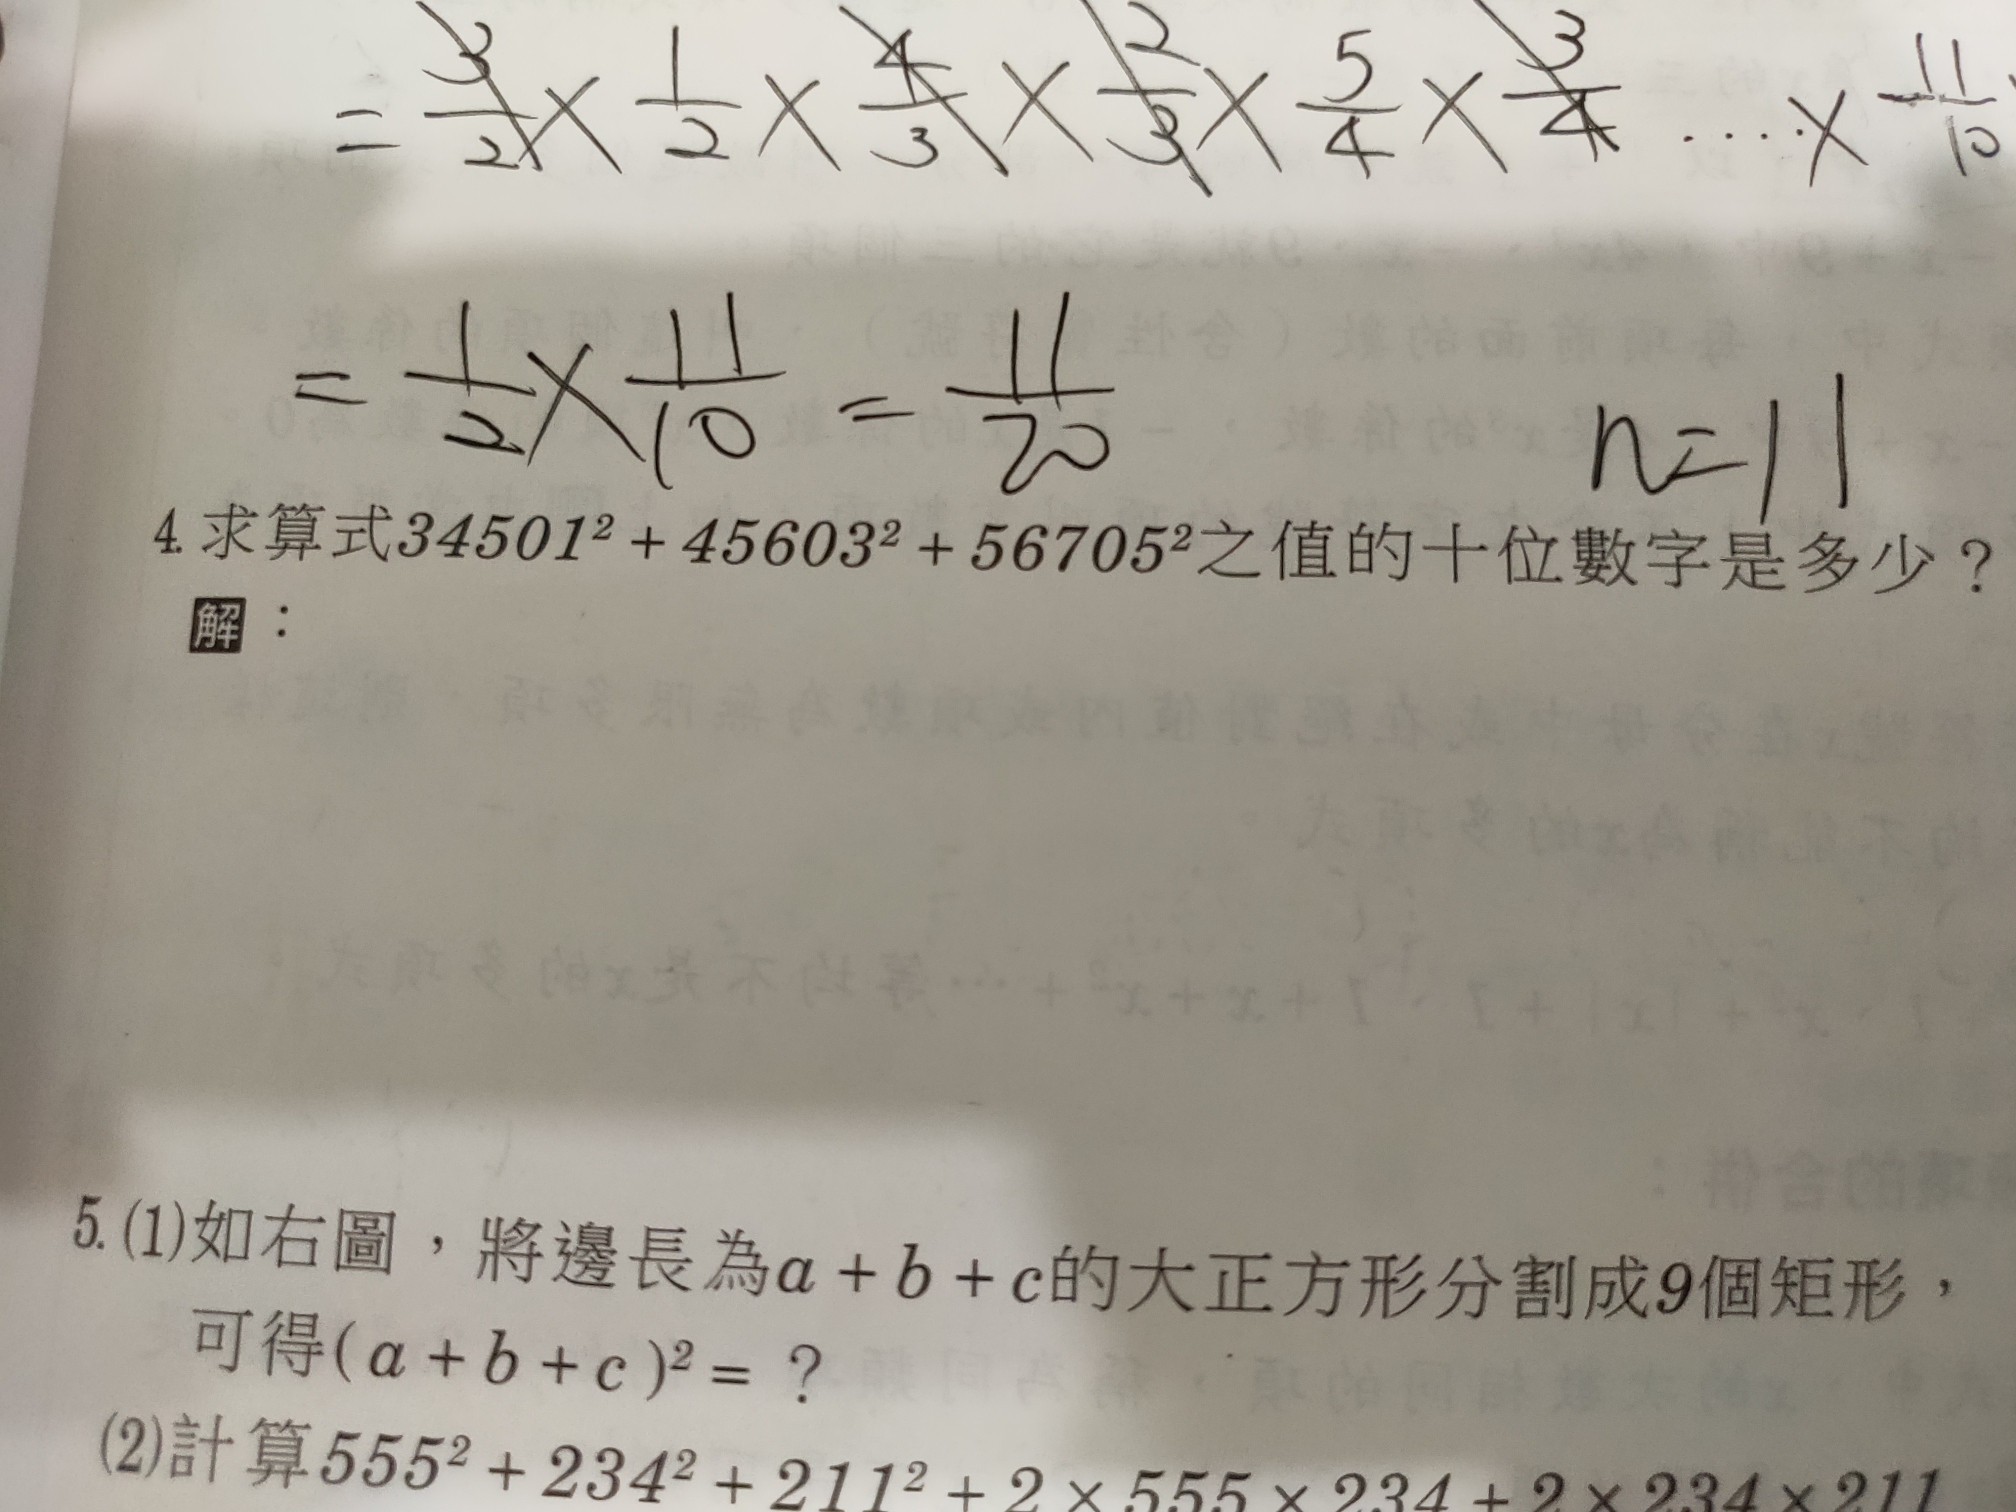 = 3/2 × 1/2 × 4/3 × 2/3 × 5/4 × 3/4 ..... × 11/10
= 1/2 × 11/10 = 11/20 n=11
4. 求算式34501² + 45603² + 56705²之值的十位數字是多少？
解：
5. (1)如右圖，將邊長為a + b + c的大正方形分割成9個矩形，
可得( a + b + c )² = ？
(2)計算555² + 234² + 211² + 2 × 555 × 234 + 2 × 234 × 211